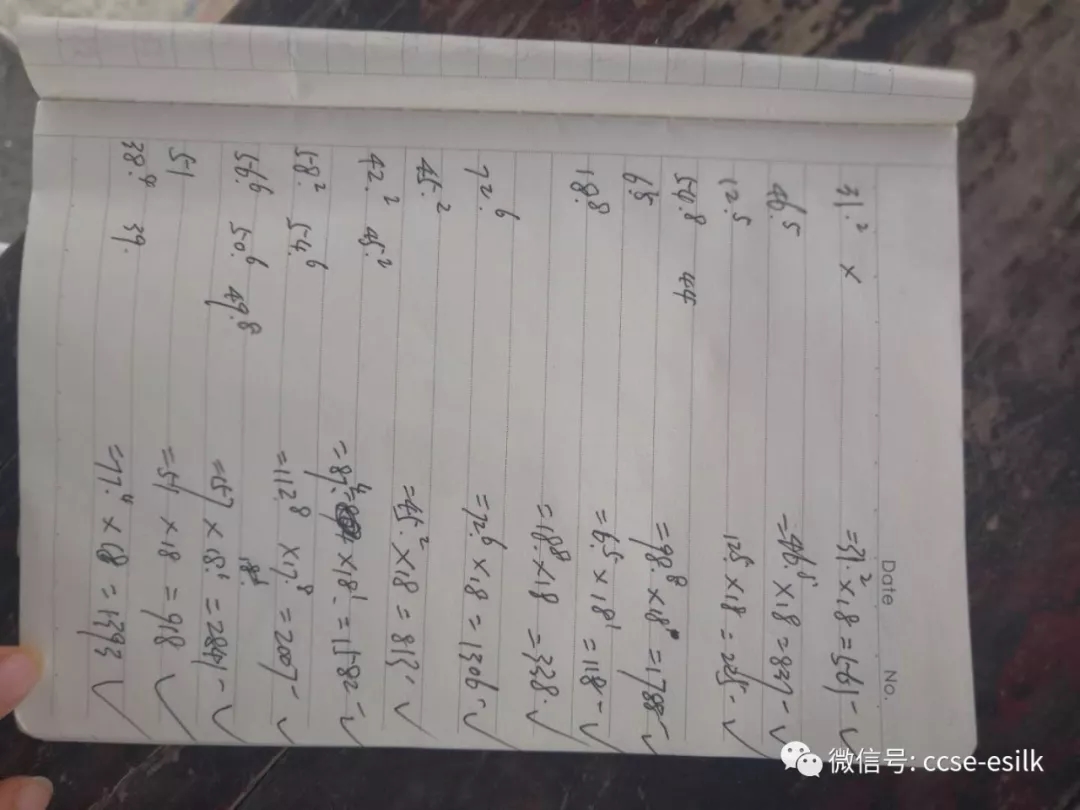 Date No.
31.² × =31.²×18=561- ✓
46.⁵ =46.⁵×18=837- ✓
12.⁵ 12.⁵×18=225- ✓
54.⁸ 44 =98.⁸×18=
6.⁵ =6.⁵×18.¹=118- ✓
18.⁸ =18.⁸×18=338. ✓
72.⁶ =72.⁶×18=1306- ✓
45.² =45.²×18=813. ✓
42.² 45.² =87.⁴ ×18.¹=1582= ✓
58.² 54.⁶ =112.⁸×17.⁸=2007- ✓
56.⁶ 50.⁶ 49.⁸ =157×18.¹=2841- ✓
51 =51×18=918 ✓
38.⁴ 39. =77.⁴×18=1393 ✓
微信号: ccse-esilk